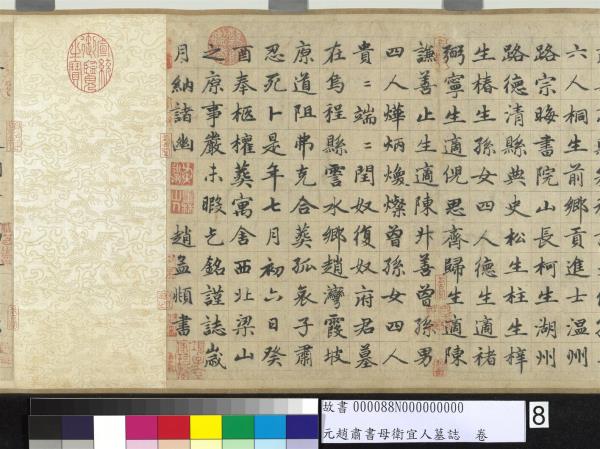 六人桐生前鄉貢進士溫州
路宗晦書院山長柯生湖州
路德清縣典史松生柱生梓
生椿生孫女四人德生適褚
弼寧生適倪思齊歸生適陳
謙善止生適陳升善曾孫男
四人燁炳煥燦曾孫女四人
貴〻端〻閏奴復奴府君墓
在烏程縣霅水鄉趙灣霞坡
原道阻弗克合葬孤哀子肅
忍死卜是年七月初六日癸
酉奉柩權葬寓舍西北梁山
之原事嚴未暇乞銘謹誌歲
月納諸幽 趙孟頫書
宣統御覽之寶
故書 000088N000000000
元趙肅書母衛宜人墓誌 卷
8